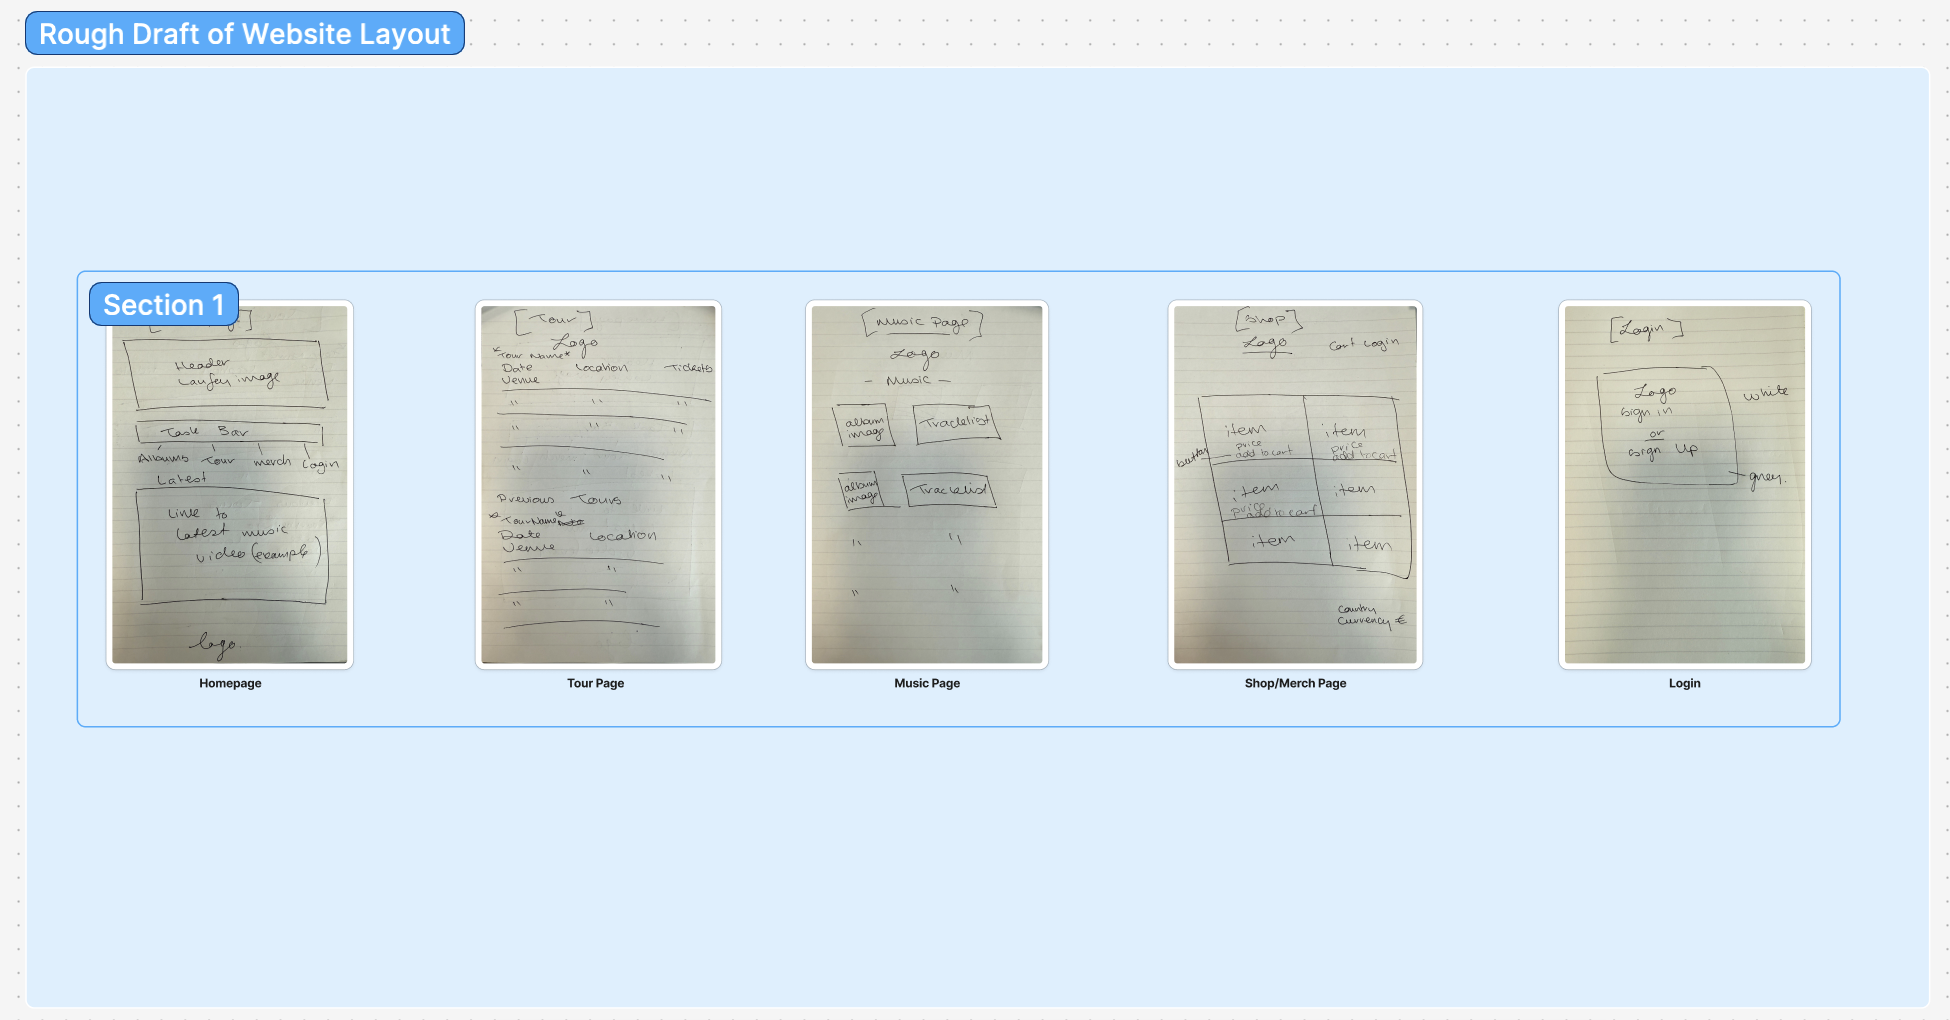 Rough Draft of Website Layout
Section 1
Header
Laufey image
Task Bar
Albums Tour merch Login
Latest
Link to
Latest music
video (example)
logo.
Homepage
[Tour]
Logo
*Tour Name*
Date Location Tickets
Venue
" " "
" " "
" " "
Previous Tours
*Tour Name*
Date Location
Venue
" "
" "
Tour Page
[Music Page]
Logo
- Music -
album image Tracklist
album image Tracklist
" "
" "
Music Page
[Shop]
Logo Cart Login
item item
price price
button add to cart add to cart
item item
price
add to cart
item item
Country
Currency €
Shop/Merch Page
[Login]
Logo
white
sign in
or
sign Up
grey.
Login